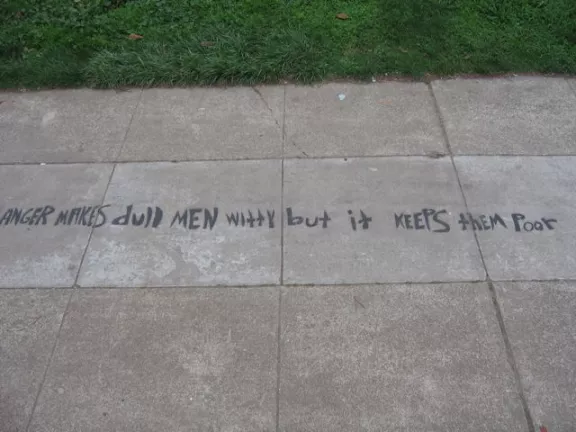 ANGER MAKES dull MEN WittY but it KEEPS them Poor